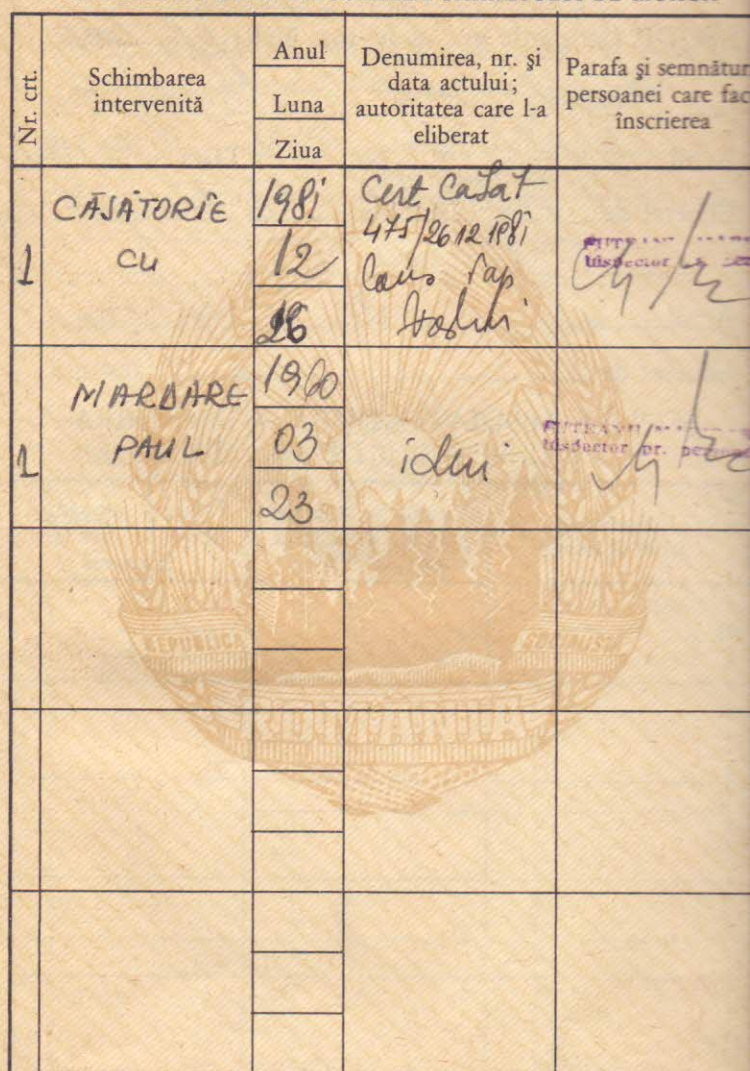 Nr. crt.
Schimbarea
intervenită
Anul
Luna
Ziua
Denumirea, nr. și
data actului;
autoritatea care l-a
eliberat
Parafa și semnătur
persoanei care fac
înscrierea
1
CĂSĂTORIE
CU
1981
12
26
Cert Casat
475/26 12 1981
Cons Pop
1
MARDARE
PAUL
1960
03
23
idem
Inspector pr.
REPUBLICA
SOCIALISTĂ
ROMÂNIA